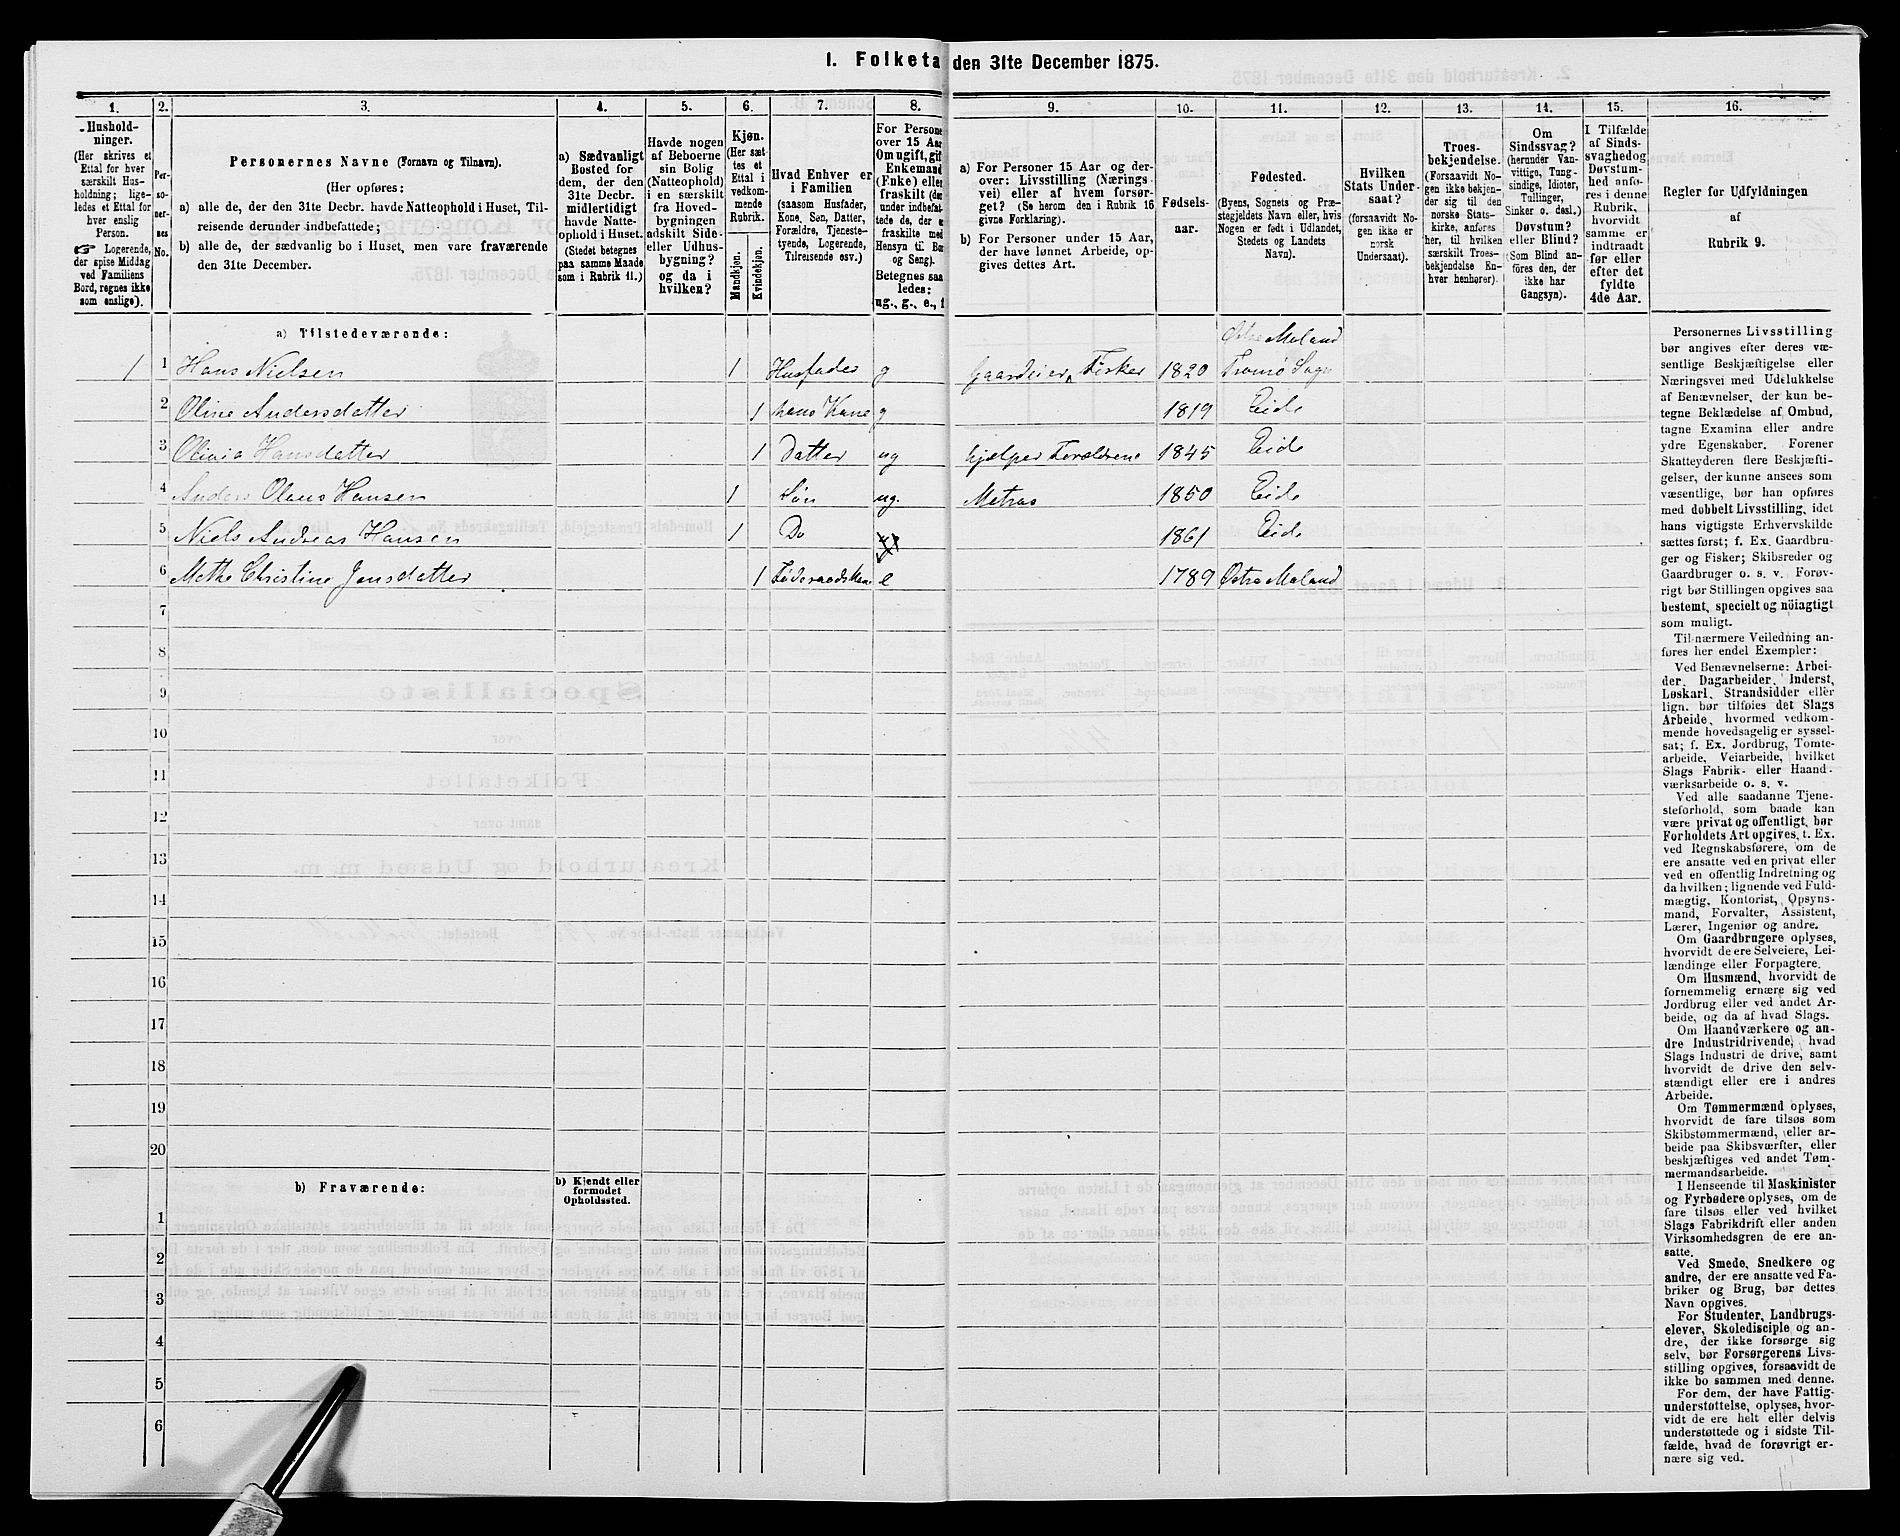 I. Folketa den 31te December 1875.
1. 2. 3. 4. 5. 6. 7. 8. 9. 10. 11. 12. 13. 14. 15. 16.
Hushold-
ninger.
(Her skrives et
Ettal for hver
særskilt Hus-
holdning; lige-
ledes et Ettal for
hver enslig
Person.
☞ Logerende,
der spise Middag
ved Familiens
Bord, regnes ikke
som enslige).
Per-
so-
ner-
nes
No.
Personernes Navne (Fornavn og Tilnavn).
(Her opføres:
a) alle de, der den 31te Decbr. havde Natteophold i Huset, Til-
reisende derunder indbefattede;
b) alle de, der sædvanlig bo i Huset, men vare fraværende
den 31te December.
a) Sædvanligt
Bosted for
dem, der den
31te Decbr.
midlertidigt
havde Natte-
ophold i Huset.
(Stedet betegnes
paa samme Maade
som i Rubrik 11.)
Havde nogen
af Beboerne
sin Bolig
(Natteophold)
i en særskilt
fra Hoved-
bygningen
adskilt Side-
eller Udhus-
bygning?
og da i
hvilken?
Kjøn.
(Her sæt-
tes et
Ettal i
vedkom-
mende
Rubrik.
Mandkjøn.
Kvindekjøn.
Hvad Enhver er
i Familien
(saasom Husfader,
Kone, Søn, Datter,
Forældre, Tjeneste-
tyende, Logerende,
Tilreisende osv.)
For Persone
over 15 Aar
Om ugift, gif
Enkemand
(Enke) elle
fraskilt (de
under indbefat-
tede de, der e
fraskilte med
Hensyn til Bo
og Seng).
Betegnes saa
ledes:
ug., g., e., f
a) For Personer 15 Aar og der-
over: Livsstilling (Nærings-
vei) eller af hvem forsør-
get? (Se herom den i Rubrik 16
givne Forklaring).
b) For Personer under 15 Aar,
der have lønnet Arbeide, op-
gives dettes Art.
Fødsels-
aar.
Fødested.
(Byens, Sognets og Præ-
stegjeldets Navn eller, hvis
Nogen er født i Udlandet,
Stedets og Landets
Navn).
Hvilken
Stats Under-
saat?
(forsaavidt No-
gen ikke er
norsk
Undersaat).
Troes-
bekjendelse.
(Forsaavidt No-
gen ikke bekjen-
der sig til den
norske Stats-
kirke, anføres
her, til hvilken
særskilt Troes-
bekjendelse En-
hver henhører).
Om
Sindssvag?
(herunder Van-
vittige, Tung-
sindige, Idioter,
Tullinger,
Sinker o. desl.)
Døvstum?
eller Blind?
(Som Blind an-
føres den, der
ikke har
Gangsyn).
I Tilfælde
af Sinds-
svaghed og
Døvstum-
hed anfø-
res i denne
Rubrik,
hvorvidt
samme er
indtraadt
før eller
efter det
fyldte
4de Aar.
Regler for Udfyldningen
af
Rubrik 9.
a) Tilstedeværende:
Østre Moland
1 1 Hans Nielsen 1 Husfader g Gaardeier, Fisker 1820 Tromø Sogn
2 Oline Andersdatter 1 hans Kone g 1819 Eide
3 Olivia Hansdatter 1 Datter ug hjælper Forældrene 1845 Eide
4 Anders Olaus Hansen 1 Søn ug. Matros 1850 Eide
5 Niels Andreas Hansen 1 Do 1861 Eide
6 Methe Christine Jensdatter 1 Føderaadskone e 1789 Østre Moland
7
8
9
10
11
12
13
14
15
16
17
18
19
20
b) Fraværende:
b) Kjendt eller
formodet
Opholdssted.
1
2
3
4
5
6
Personernes Livsstilling
bør angives efter deres væ-
sentlige Beskjæftigelse eller
Næringsvei med Udelukkelse
af Benævnelser, der kun be-
tegne Beklædelse af Ombud,
tagne Examina eller andre
ydre Egenskaber. Forener
Skatteyderen flere Beskjæfti-
gelser, der kunne ansees som
væsentlige, bør han opføres
med dobbelt Livsstilling, idet
hans vigtigste Erhvervskilde
sættes først; f. Ex. Gaardbru-
ger og Fisker; Skibsreder og
Gaardbruger o. s. v. Forøv-
rigt bør Stillingen opgives saa
bestemt, specielt og nöiagtigt
som muligt.
Til nærmere Veiledning an-
føres her endel Exempler:
Ved Benævnelserne: Arbei-
der, Dagarbeider, Inderst,
Løskarl, Strandsidder eller
lign. bør tilføies det Slags
Arbeide, hvormed vedkom-
mende hovedsagelig er syssel-
sat; f. Ex. Jordbrug, Tomte-
arbeide, Veiarbeide, hvilket
Slags Fabrik- eller Haand-
værksarbeide o. s. v.
Ved alle saadanne Tjene-
steforhold, som baade kan
være privat og offentligt, bør
Forholdets Art opgives, t. Ex.
ved Regnskabsførere, om de
ere ansatte ved en privat eller
ved en offentlig Indretning og
da hvilken; lignende ved Fuld-
mægtig, Kontorist, Opsyns-
mand, Forvalter, Assistent,
Lærer, Ingeniør og andre.
Om Gaardbrugere oplyses,
hvorvidt de ere Selveiere, Lei-
lændinge eller Forpagtere.
Om Husmænd, hvorvidt de
fornemmelig ernære sig ved
Jordbrug eller ved andet Ar-
beide, og da af hvad Slags.
Om Haandværkere og an-
dre Industridrivende, hvad
Slags Industri de drive, samt
hvorvidt de drive den selv-
stændigt eller ere i andres
Arbeide.
Om Tømmermænd oplyses,
hvorvidt de fare tilsøs som
Skibstømmermænd, eller ar-
beide paa Skibsværfter, eller
beskjæftiges ved andet Tøm-
mermandsarbeide.
I Henseende til Maskinister
og Fyrbødere oplyses, om de
fare tilsøs eller ved hvilket
Slags Fabrikdrift eller anden
Virksomhedsgren de ere an-
satte.
Ved Smede, Snedkere og
andre, der ere ansatte ved Fa-
briker og Brug, bør dettes
Navn opgives.
For Studenter, Landbrugs-
elever, Skoledisciple og an-
dre, der ikke forsørge sig
selv, bør Forsørgerens Livs-
stilling opgives, forsaavidt de
ikke bo sammen med denne.
For dem, der have Fattig-
understøttelse, oplyses, hvor-
vidt de ere helt eller delvis
understøttede og i sidste Til-
fælde, hvad de forøvrigt er-
nære sig ved.